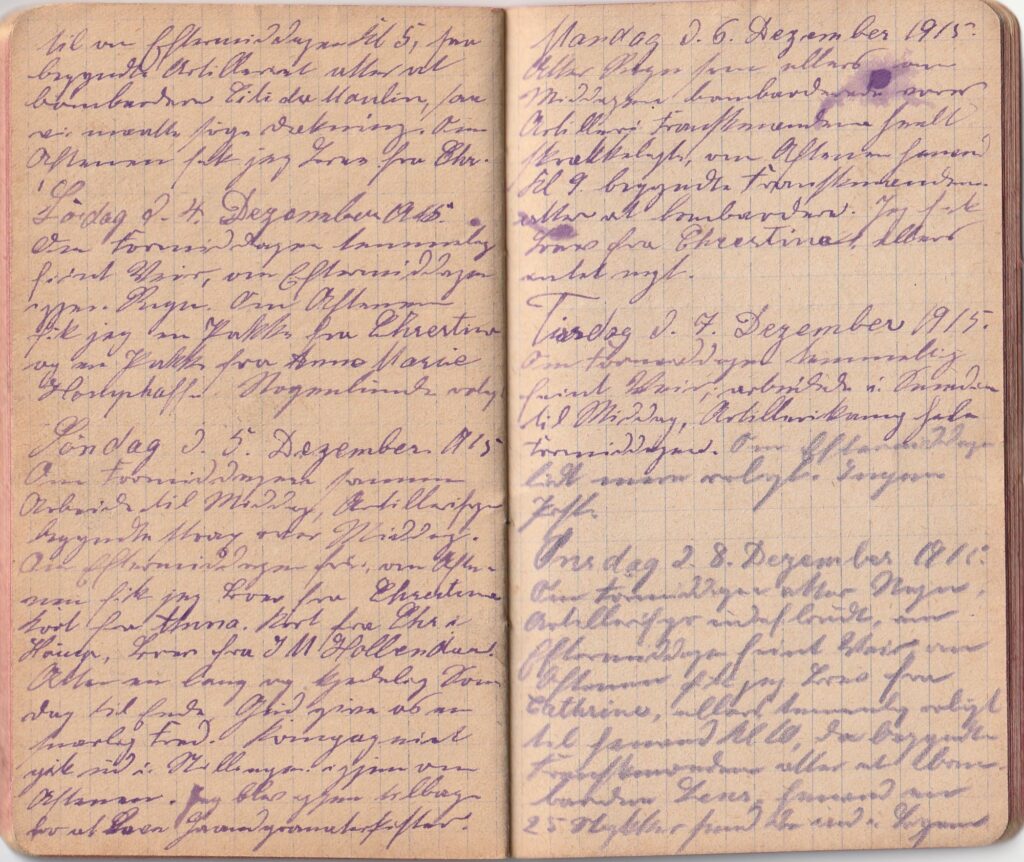 til om Eftermiddagen Kl 5, saa
begyndte Artilleriet atter at
bombardere Moulin, saa
vi maatte søge Dækning. Om
Aftenen fik jeg Brev fra Chr.
Lördag d. 4. Dezember 1915.
Om Formiddagen temmelig
feint Veir, om Eftermiddagen
igjen Regn. Om Aftenen
fik jeg en Pakke fra Chrestine
og en Pakke fra Anna Marie
Nogenlunde rolig
Söndag d. 5. Dezember 1915
Om Formiddagen samme
Arbeide til Middag, Artillerifyr
begyndte strax over Middag.
Om Eftermiddagen fri, om Afte-
nen fik jeg Brev fra Chrestine
Kort fra Anna. Kort fra Chr i
Brev fra J M Hollender.
Atter en lang og kjedelig Søn
dag til Ende. Gud give os en
snarlig Fred. Kompagniet
gik ud i Stillingen igjen om
Aftenen. Jeg blev igjen tilbage
for at Haandgranatkister.
Mandag d. 6. Dezember 1915.
Atter Regn som ellers om
Middagen bombarderede vores
Artilleri Franskmændene heelt
skrækkeligt, om Aftenen henved
Kl 9. begyndte Franskmændene
atter at bombardere. Jeg fik
Brev fra Chrestine, ellers
intet nyt.
Tirsdag d. 7. Dezember 1915.
Om Formiddagen temmelig
feint Veir, arbeidede i
til Middag, Artillerikamp hele
Formiddagen. Om Eftermiddagen
lidt mere roligt. Ingen
Post.
Onsdag d. 8. Dezember 1915.
Om Formiddagen atter Regn,
Artillerifyr om
Eftermiddagen feint Veir, om
Aftenen fik jeg Brev fra
Cathrine, ellers temmelig roligt
til henved Kl 10, da begyndte
Franskmændene atter at bom-
bardere Lens, henved en
25 Stykker sendte de ind i Byen